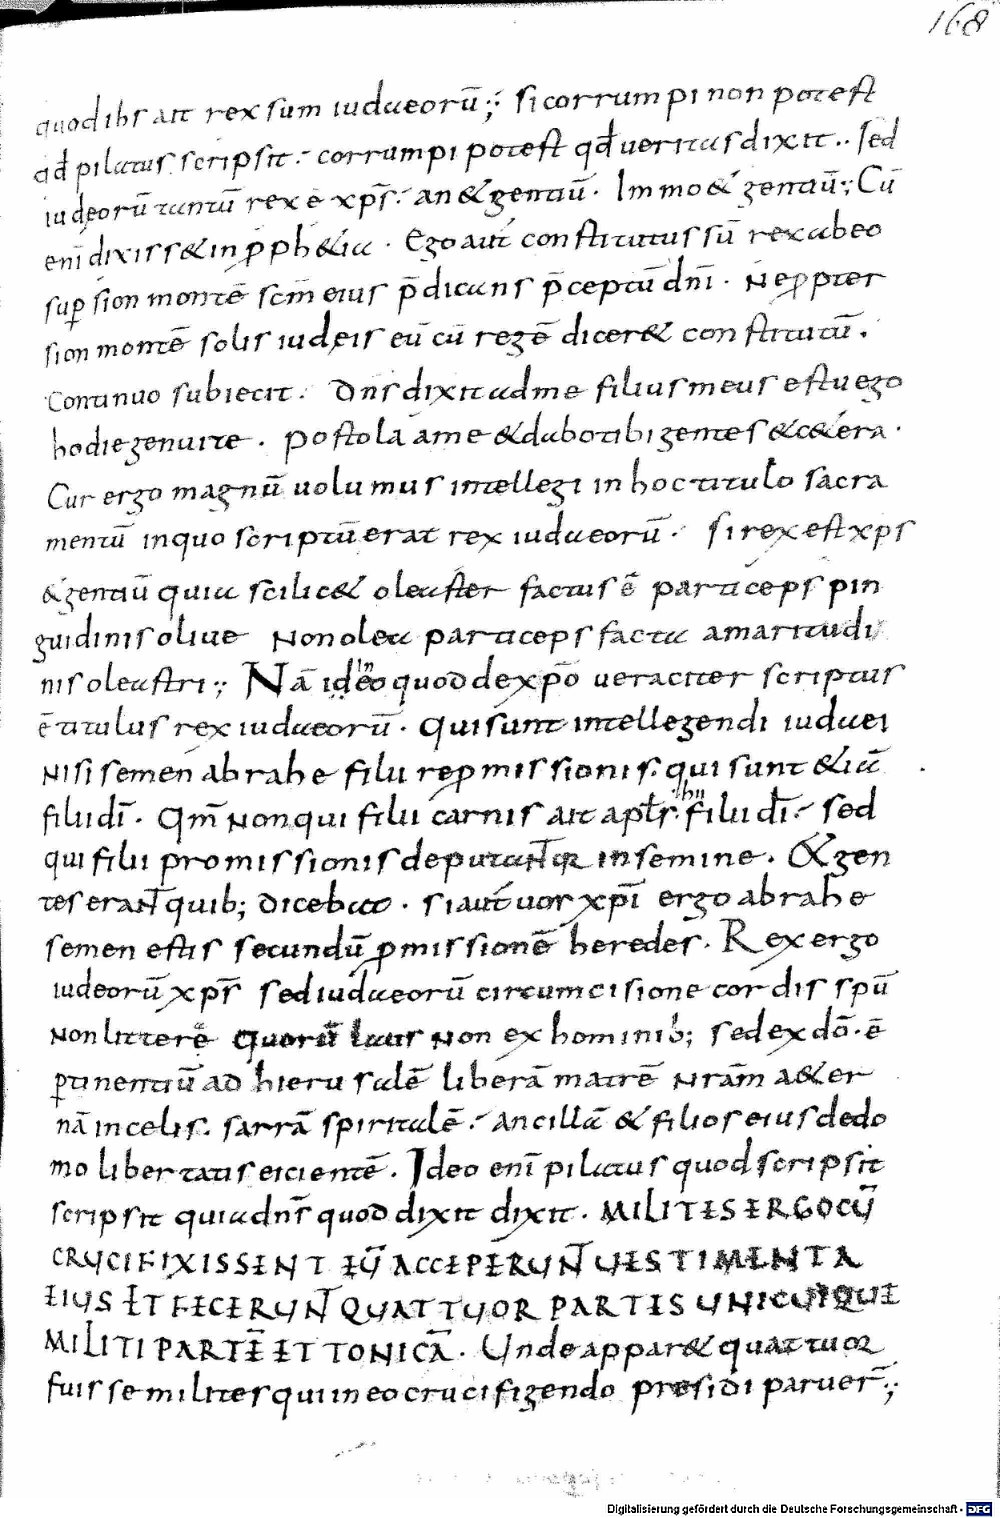 168
quod ihs ait rex sum iudaeorū; si corrumpi non potest
qđ pilatus scripsit. corrumpi potest qđ ueritas dixit.. sed
iudeorū tantū rex ē xp̄s. an & gentiū. Immo & gentiū; Cū
enī dixiss& in ꝓph&ia. Ego autē constitutus sū rex abeo
suꝑ sion montē scm̄ eius p̄dicans p̄ceptū dnī. Ne ꝓpter
sion montē solis iudeis eū cū regē dicer& constitutū.
Continuo subiecit. Dn̄s dixit ad me filius meus es tu ego
hodie genui te. postola a me & dabo tibi gentes & c&era.
Cur ergo magnū uolumus intellegi in hoc titulo sacra
mentū in quo scriptū erat rex iudaeorū. si rex est xp̄s
& gentiū quia scilic& oleaster factus ē particeps pin
guidinis oliue Non olea particeps facta amaritudi
nis oleastri; Nā ideo quod de xp̄o ueraciter scriptus
ē titulus rex iudaeorū. Qui sunt intellegendi iudaei
Nisi semen abrahe filii reꝑmissionis. qui sunt &iā
filii dī. Qm̄ Non qui filii carnis ait apl̄s. hii filii dī. sed
qui filii promissionis deputanT̄ur in semine. & gen
tes eranT̄ quib; dicebat. si autē uos xp̄i ergo abrahe
semen estis secundū ꝓmissionē heredes. Rex ergo
iudeorū xp̄s sed iudaeorū circumcisione cordis spū
Non litterē Quorū laus Non ex hominib; sed ex dō. ē
ꝑtinentiū ad hierusalē liberā matrē Nrām a&er
nā in celis. sarrā spiritalē. ancillā & filios eius dedo
mo libertatis eicientē. Ideo enī pilatus quod scripsit
scripsit quia dn̄s quod dixit dixit. MILITES ERGO CŪ
CRUCIFIXISSENT EŪ ACCEPERUNT̄ UESTIMENTA
EIUS ET FECERUNT̄ QUATTUOR PARTIS UNICUIQUE
MILITI PARTĒ ET TONICĀ. Unde appar& quattuor
fuisse milites qui in eo crucifigendo presidi paruer̄;
Digitalisierung gefördert durch die Deutsche Forschungsgemeinschaft - DFG